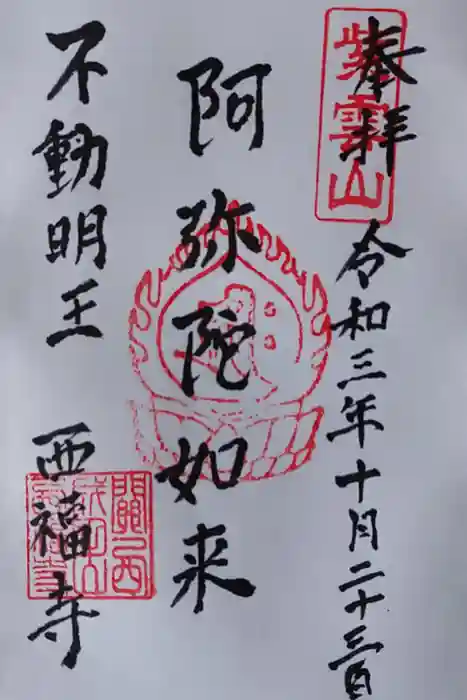 奉拝
紫雲山
令和三年十月二十三日
阿弥陀如来
不動明王
西福寺